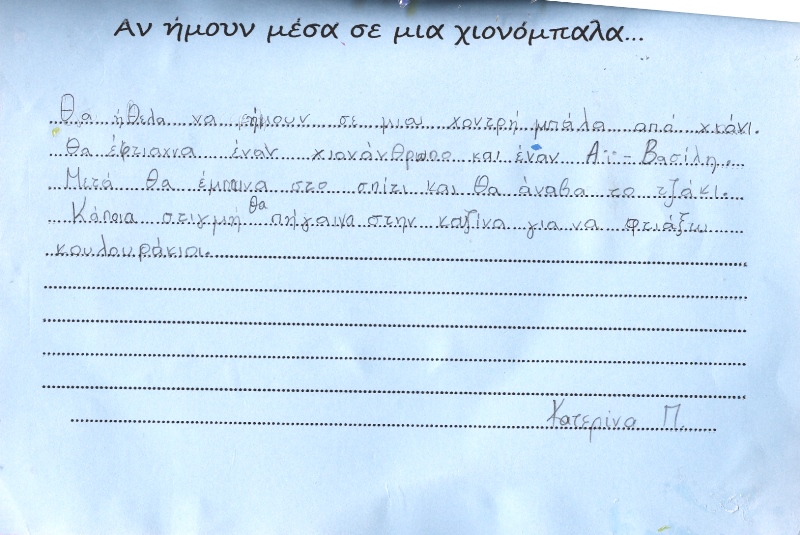 Αν ήμουν μέσα σε μια χιονόμπαλα...
Θα ήθελα να ήμουν σε μια χοντρή μπάλα από χιόνι.
Θα έφτιαχνα έναν χιονάνθρωπο και έναν Αϊ-Βασίλη.
Μετά θα έμπαινα στο σπίτι και θα άναβα το τζάκι.
Κάποια στιγμή θα πήγαινα στην καζίνα για να φτιάξω
κουλουράκια.
Κατερίνα Π.